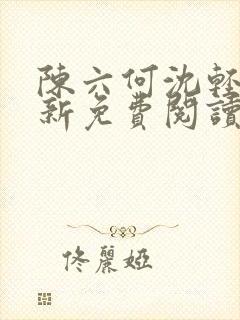 陳六何沈輕
新免費閱讀
佟麗婭